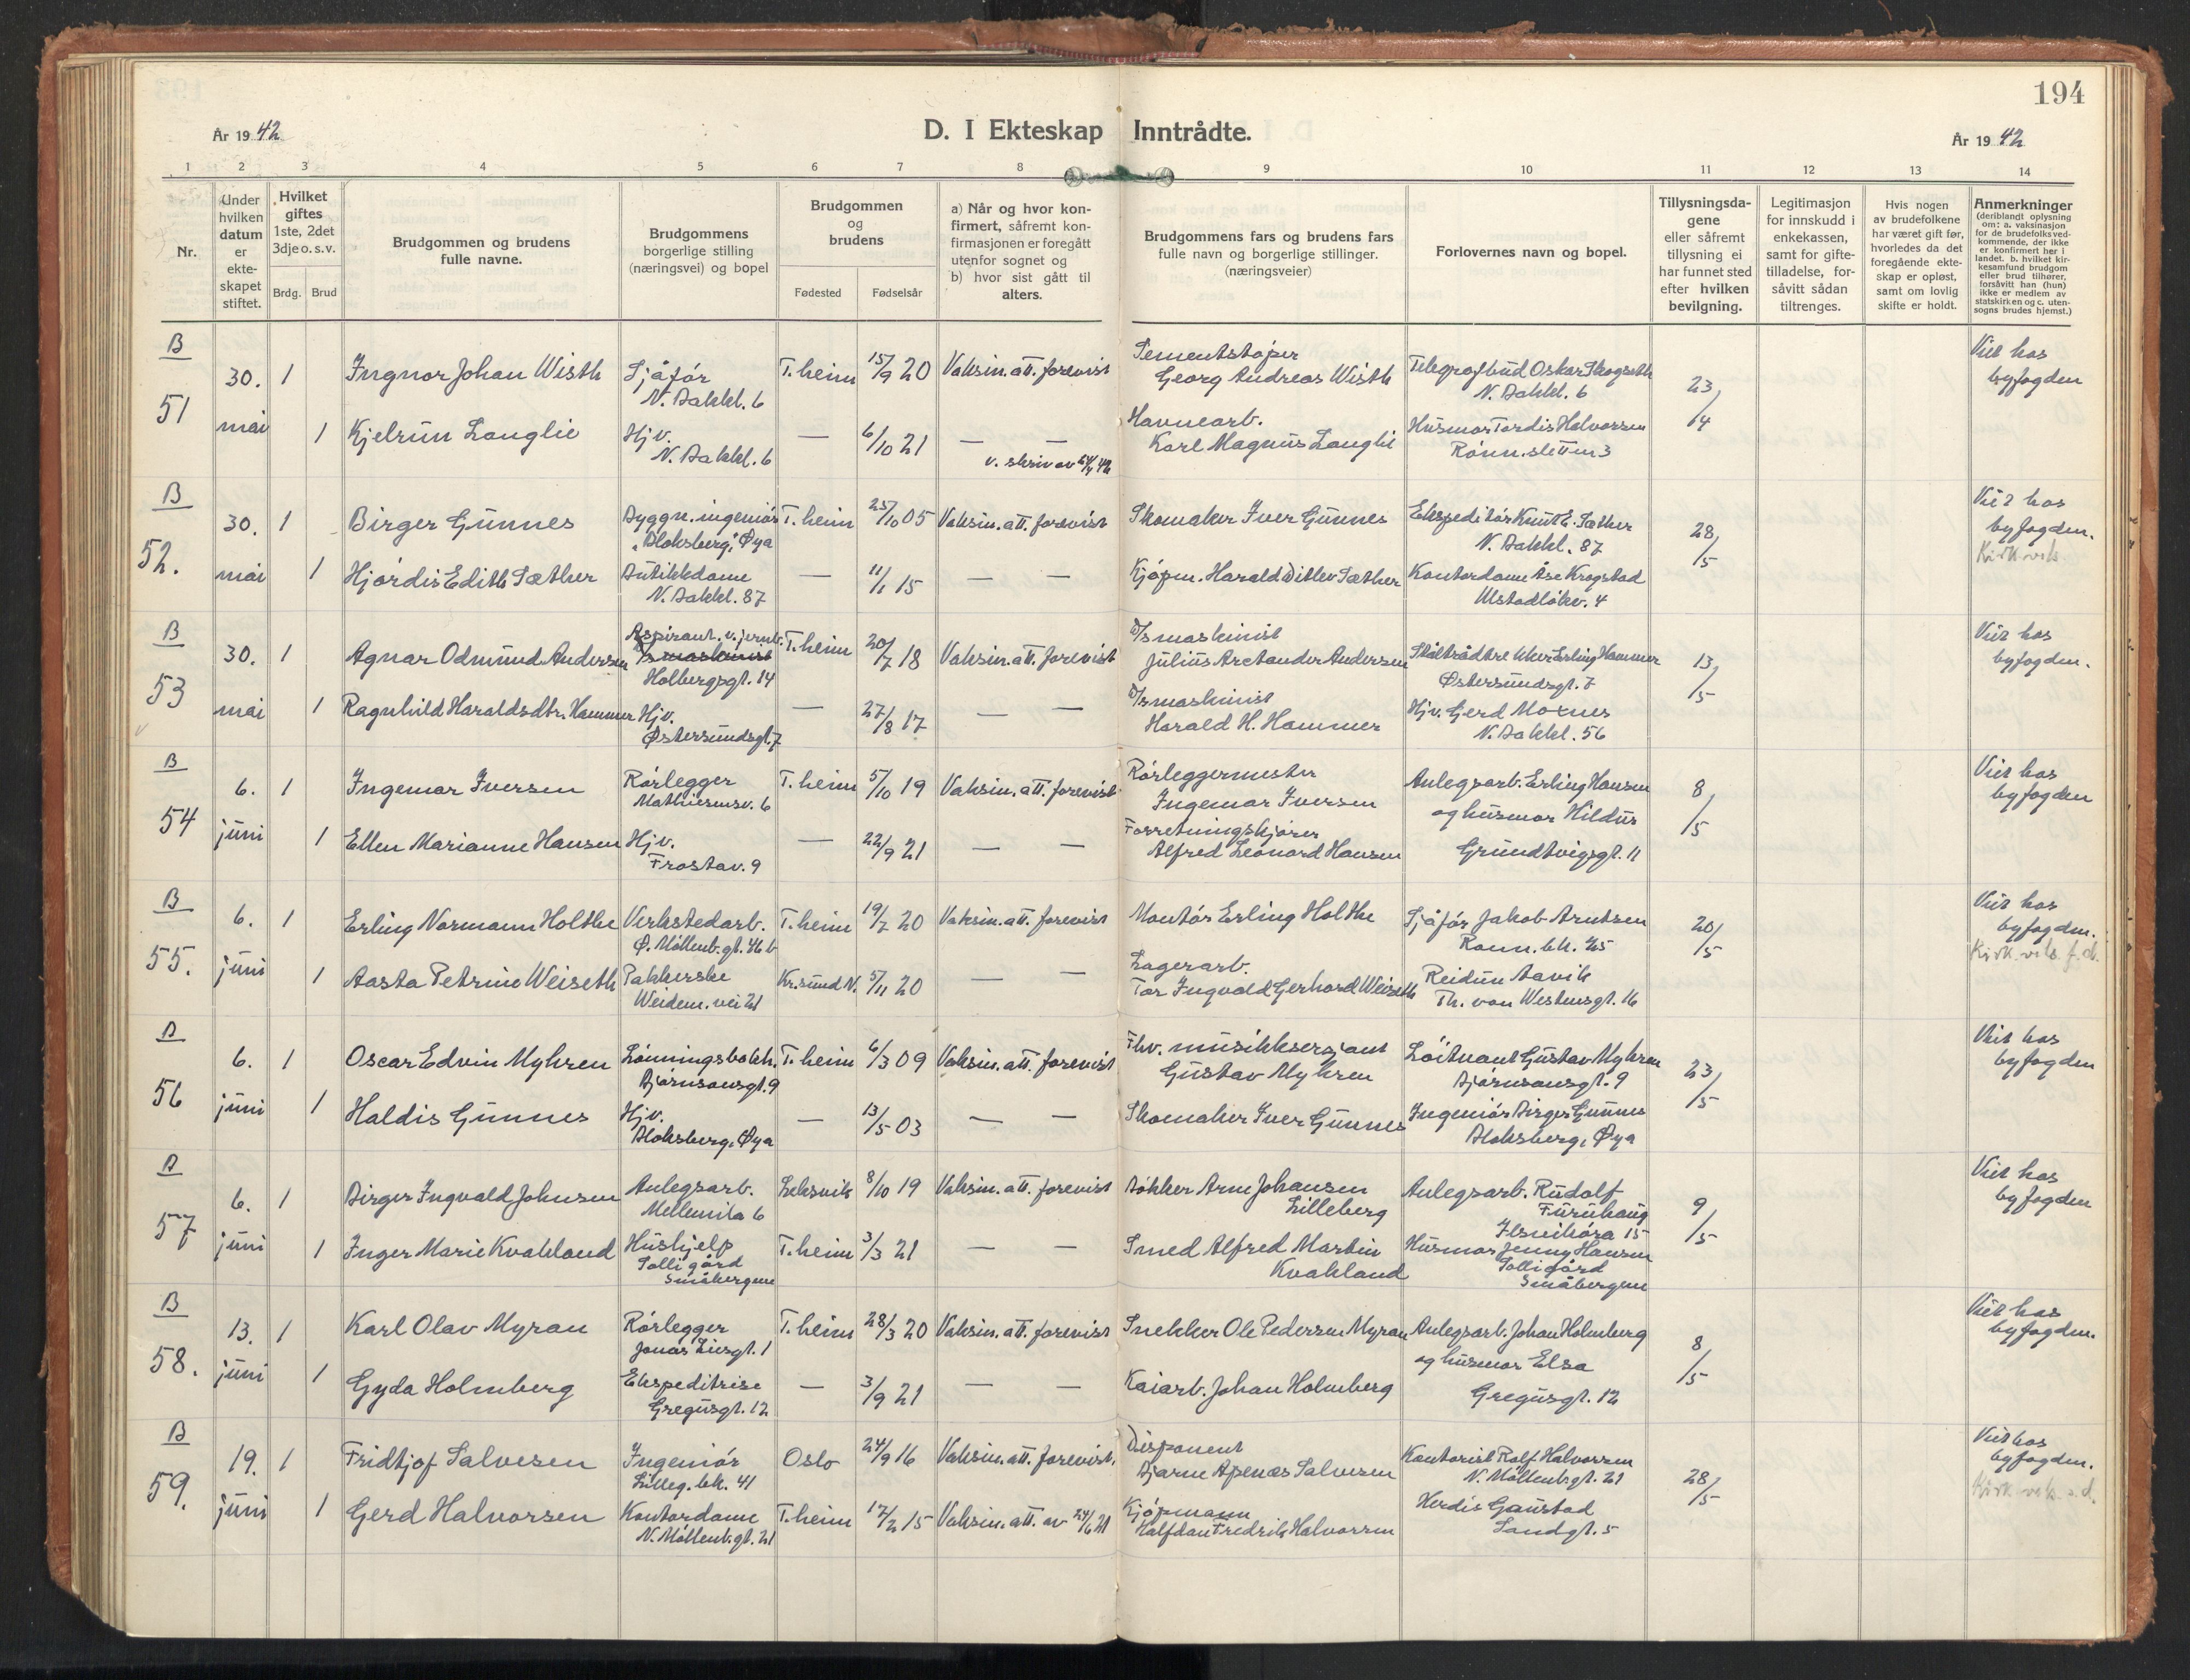 194
År 19 42
D. I Ekteskap Inntrådte.
År 19 42
1 2 3 4 5 6 7 8 9 10 11 12 13 14
Nr.
Under
hvilken
datum
er
ekte-
skapet
stiftet.
Hvilket
giftes
1ste, 2det
3dje o. s. v.
Brdg. Brud
Brudgommen og brudens
fulle navne.
Brudgommens
borgerlige stilling
(næringsvei) og bopel
Brudgommen
og
brudens
Fødested Fødselsår
a) Når og hvor kon-
firmert, såfremt kon-
firmasjonen er foregått
utenfor sognet og
b) hvor sist gått til
alters.
Brudgommens fars og brudens fars
fulle navn og borgerlige stillinger.
(næringsveier)
Forlovernes navn og bopel.
Tillysningsda-
gene
eller såfremt
tillysning ei
har funnet sted
efter hvilken
bevilgning.
Legitimasjon
for innskudd i
enkekassen,
samt for gifte-
tilladelse, for-
såvitt sådan
tiltrenges.
Hvis nogen
av brudefolkene
har været gift før,
hvorledes da det
foregående ekte-
skap er opløst,
samt om lovlig
skifte er holdt.
Anmerkninger
(deriblandt oplysning
om: a. vaksinasjon
for de brudefolks ved-
kommende, der ikke
er konfirmert her i
landet. b. hvilket kir-
kesamfund brudgom
eller brud tilhører,
forsåvitt han (hun)
ikke er medlem av
statskirken og c. uten-
sogns brudes hjemst.)
B
51
30. mai
1 Ingnor Johan Wisth
Sjåfør
N. Bakkl. 6
T.heim 15/9 20 Vaksin. att. forevist
Sementstøper
Georg Andreas Wisth
Telegrafbud Oskar Skogseth
N. Bakkl. 6
23/4
Viet hos
byfogden
1 Kjelrun Langlie
Hjv.
N. Bakkl. 6
— 6/10 21 — —
v. skriv av 24/4 42
Havnearb.
Karl Magnus Langlie
Husmor Tordis Halvorsen
Rønn.sletten 3
B
52.
30. mai
1 Birger Gunnes
Byggn.ingeniør
"Bloksberg", Øya
T.heim 25/10 05 Vaksin. att. forevist
Skomaker Iver Gunnes
Ekspeditør Knut E. Sæther
N. Bakkl. 87
28/5
Viet hos
byfogden.
Kirk. vels.
1 Hjørdis Edith Sæther
Butikkdame
N. Bakkl. 87
— 11/1 15 — —
Kjøpm. Harald Ditlev Sæther
Kontordame Åse Krogstad
Ulstadløkv. 4
B
53
30. mai
1 Agnar Odmund Andersen
Aspirant. v. jernb.
D/s maskinist
Holbergsgt. 14
T.heim 20/7 18 Vaksin. att. forevist
D/s maskinist
Julius Arctander Andersen
Ståltrådtrekker Erling Hammer
Østersundsgt. 7
13/5
Viet hos
byfogden.
1 Ragnhild Haraldsdtr. Hammer
Hjv.
Østersundsgt. 7
— 27/8 17 — —
D/s maskinist
Harald H. Hammer
Hjv. Gerd Moxnes
N. Bakkl. 56
B
54
6. juni
1 Ingemar Iversen
Rørlegger
Mathiesensv. 6
T.heim 5/10 19 Vaksin. att. forevist
Rørleggermester
Ingemar Iversen
Anlegsarb. Erling Hansen
og husmor Hildur
Grundtvigsgt. 11
8/5
Viet hos
byfogden
1 Ellen Marianne Hansen
Hjv.
Frostav. 9
— 22/9 21 — —
Forretningskjører
Alfred Leonard Hansen
B
55.
6. juni
1 Erling Normann Holthe
Verkstedarb.
Ø. Møllenb.gt. 46 b
T.heim 19/7 20 Vaksin. att. forevist
Montør Erling Holthe
Sjåfør Jakob Arntsen
Rønn. bk. 25
20/5
Viet hos
byfogden.
Kirk. vels. f. d.
1 Aasta Petrine Weiseth
Pakkerske
Weidem. vei 21
Kr.sund N. 5/11 20 — —
Lagerarb.
Tor Ingvald Gerhard Weiseth
Reidun Aavik
Th. von Westensgt. 16
B
56
6. juni
1 Oscar Edvin Myhren
Lønningsbokh.
Bjørnsonsgt. 9
T.heim 6/3 09 Vaksin. att. forevist
Fhv. musikksersjant
Gustav Myhren
Løitnant Gustav Myhren
Bjørnsonsgt. 9
23/5
Viet hos
byfogden
1 Haldis Gunnes
Hjv.
Bloksberg, Øya
— 13/5 03 — —
Skomaker Iver Gunnes
Ingeniør Birger Gunnes
Bloksberg, Øya
B
57
6. juni
1 Birger Ingvald Johnsen
Anlegsarb.
Mellemila 6
Leksvik 8/10 19 Vaksin. att. forevist
Bøkker Arne Johansen
Lilleberg
Anlegsarb. Rudolf
Furuhaug
Ilsvikøra 15
9/5
Viet hos
byfogden
1 Inger Marie Kvakland
Hushjelp
Solligård
Småbergene
T.heim 3/3 21 — —
Smed Alfred Martin
Kvakland
Husmor Jenny Hansen
Solligård
Småbergene
B
58.
13. juni
1 Karl Olav Myran
Rørlegger
Jonas Liesgt. 1
T.heim 28/3 20 Vaksin. att. forevist
Snekker Ole Pedersen Myran
Anlegsarb. Johan Holmberg
og husmor Elsa
Gregusgt. 12
8/5
Viet hos
byfogden.
1 Gyda Holmberg
Ekspeditrise
Gregusgt. 12
— 3/9 21 — —
Kaiarb. Johan Holmberg
B
59.
19. juni
1 Fridtjof Salvesen
Ingeniør
Lilleg. bk. 41
Oslo 24/9 16 Vaksin. att. forevist.
Disponent
Bjarne Apenæs Salvesen
Kontorist Rolf Halvorsen
N. Møllenb.gt. 21
28/5
Viet hos
byfogden.
Kirk. vels. s. d.
1 Gerd Halvorsen
Kontordame
N. Møllenb.gt. 21
T.heim 17/2 15 Vaksin. att. av 24/6 21
Kjøpmann
Halfdan Fredrik Halvorsen
Herdis Gaustad
Sandgt. 5